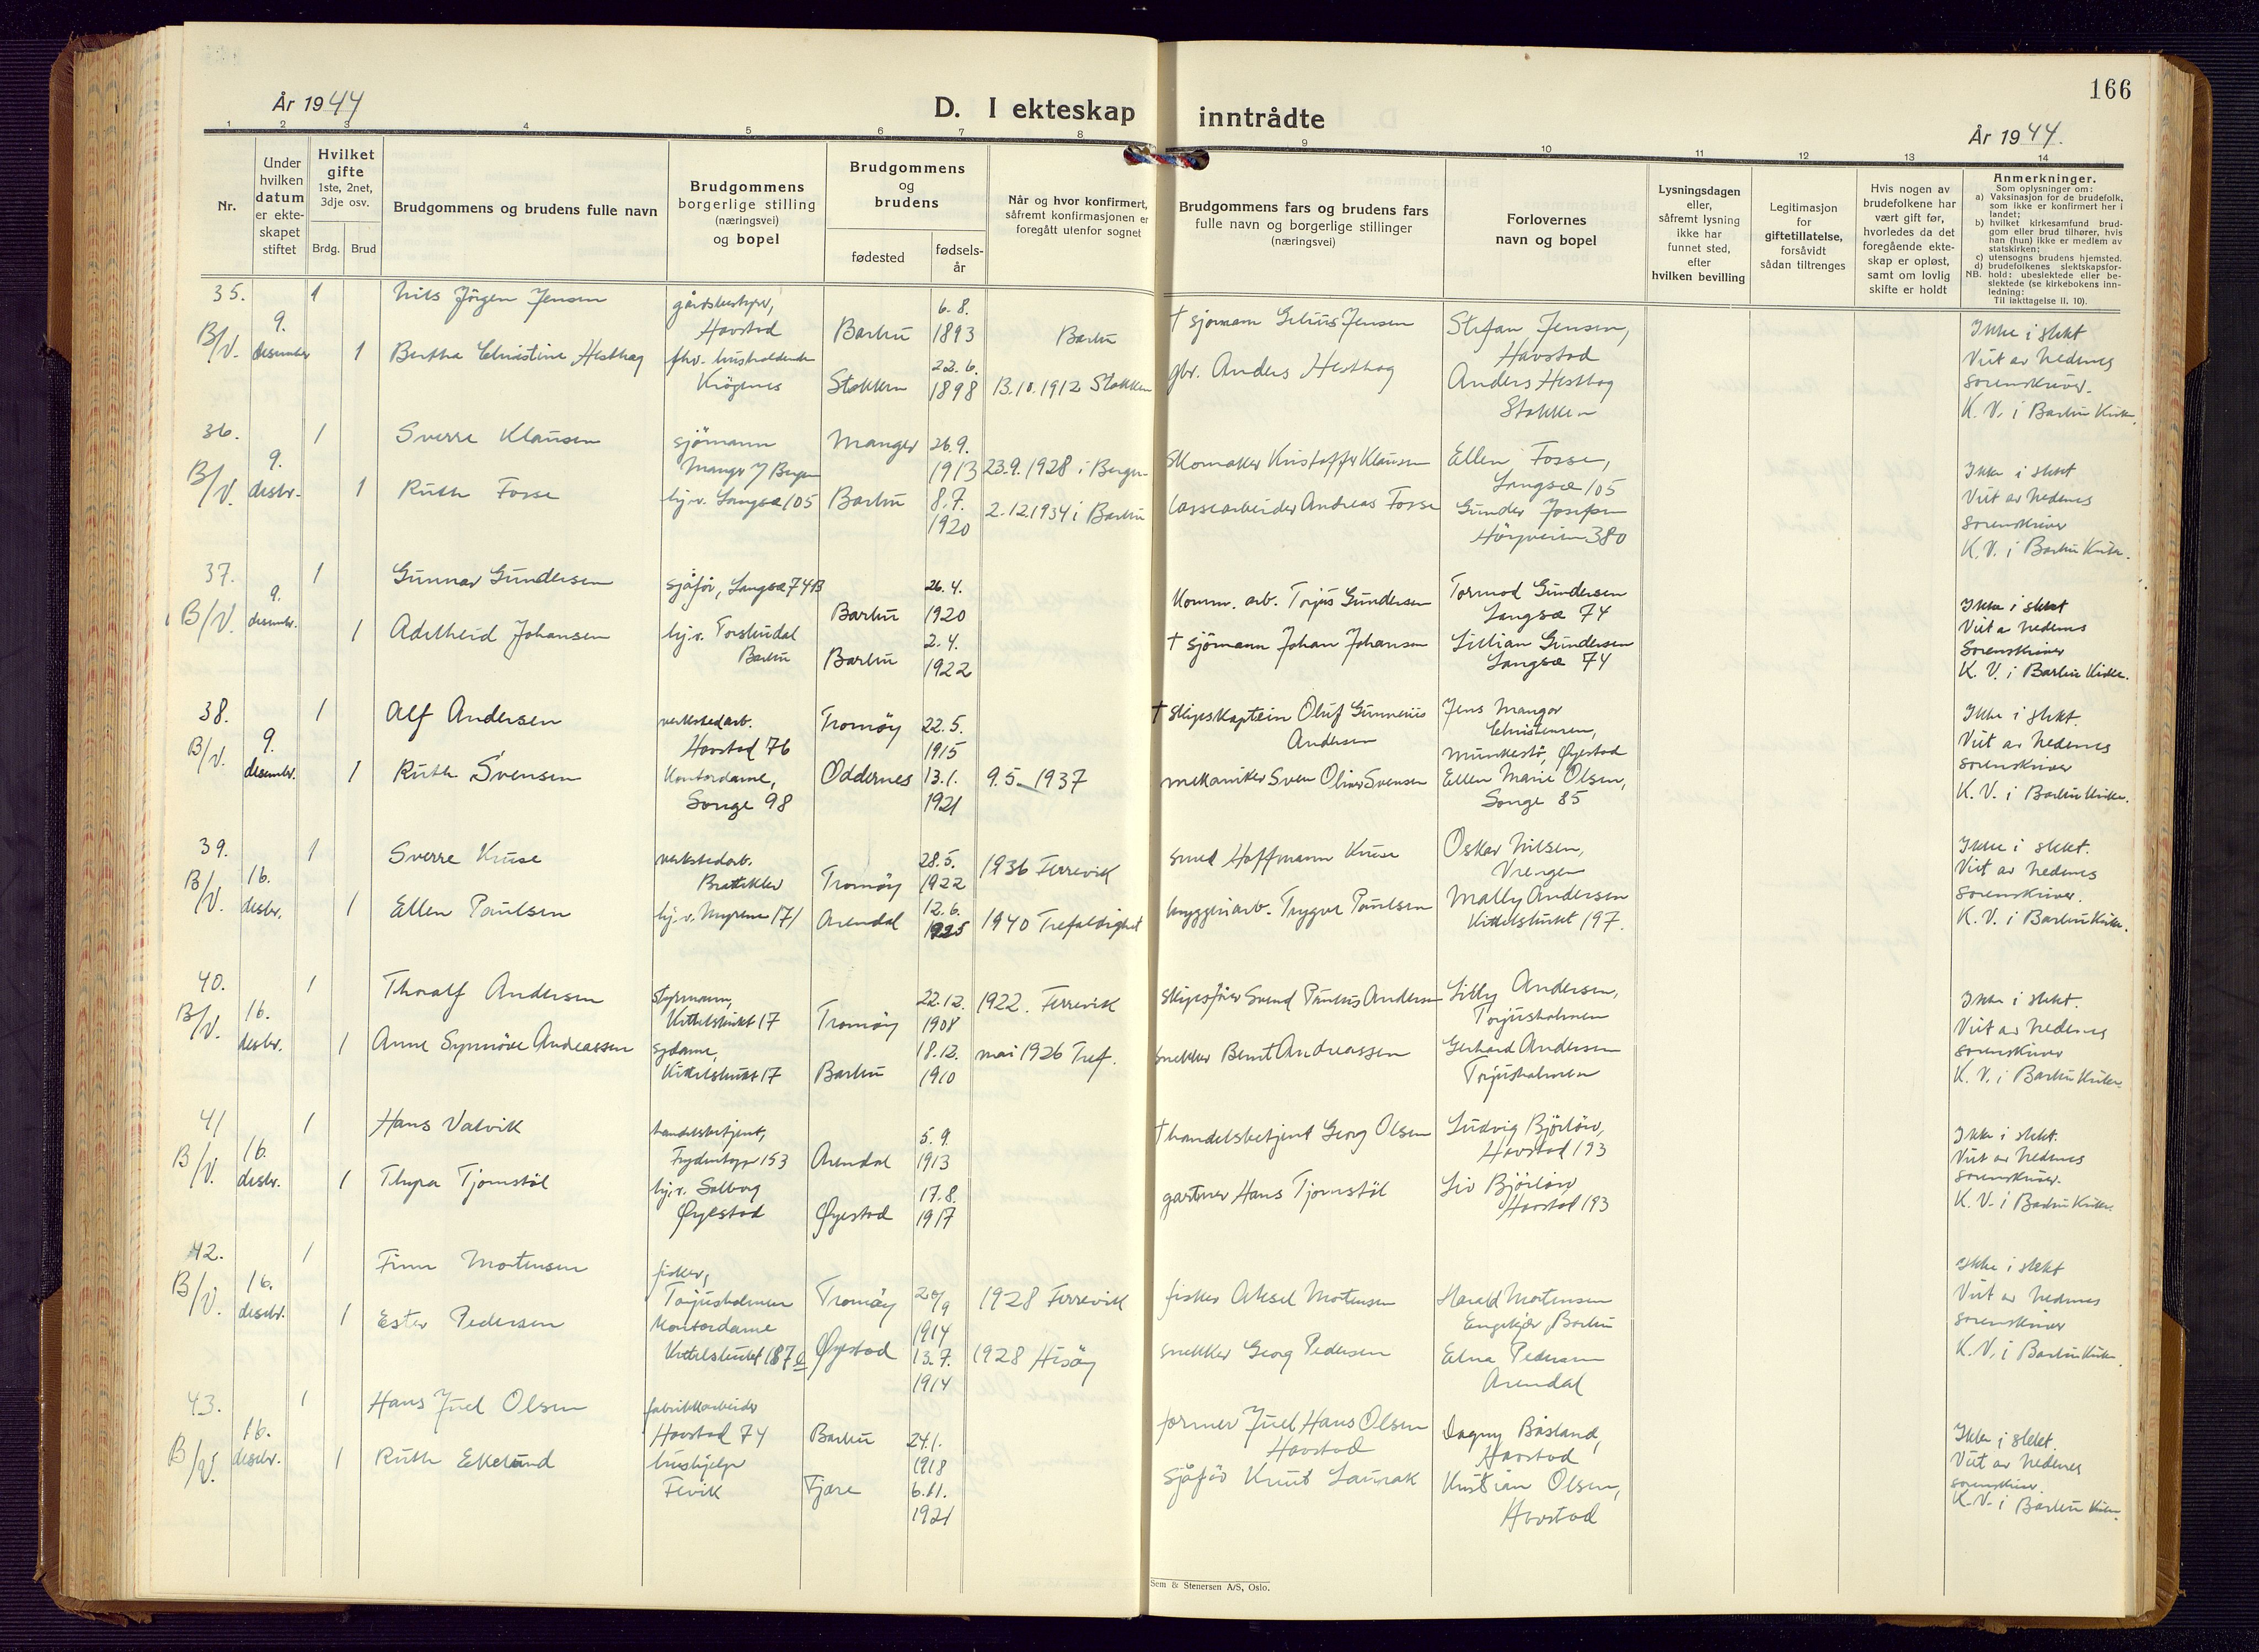 År 1944
D. I ekteskap inntrådte
166
År 1944.
1 2 3 4 5 6 7 8 9 10 11 12 13 14
Nr.
Under hvilken datum er ekteskapet stiftet
Hvilket gifte
1ste, 2net, 3dje osv.
Brdg. Brud
Brudgommens og brudens fulle navn
Brudgommens borgerlige stilling (næringsvei) og bopel
Brudgommens og brudens
fødested
fødselsår
Når og hvor konfirmert, såfremt konfirmasjonen er foregått utenfor sognet
Brudgommens fars og brudens fars fulle navn og borgerlige stillinger (næringsvei)
Forlovernes navn og bopel
Lysningsdagen eller, såfremt lysning ikke har funnet sted, efter hvilken bevilling
Legitimasjon for giftetillatelse, forsåvidt sådan tiltrenges
Hvis nogen av brudefolkene har vært gift før, hvorledes da det foregående ekteskap er opløst, samt om lovlig skifte er holdt
Anmerkninger.
Som oplysninger om:
a) Vaksinasjon for de brudefolk, som ikke er konfirmert her i landet;
b) hvilket kirkesamfund brudgom eller brud tilhører, hvis han (hun) ikke er medlem av statskirken;
c) utensogns brudens hjemsted.
d) brudefolkenes slektskapsforhold: ubeslektede eller beslektede (se kirkebokens innledning:
NB.
Til iakttagelse II. 10).
35. 1 Nils Jörgen Jensen
Havstad Barbu 6.8. 1893 Barbu
† sjömann Jensen
Stefan Jensen, Havstad
B/V. 9. desember 1 Bertha Christine Hesthag
Krögenes Stokken 22.6. 1898 13.10.1912 Stokken
gbr. Anders Hesthag
Anders Hesthag Stokken
Ikke i slekt
Viet av Nedenes
sorenskriver.
K. V. i Barbu Kirke.
36. 1 Sverre Klausen
sjömann Manger 26.9. 1913 23.9.1928 i Bergen
Skomaker Kristoffer Klausen
Ellen Fosse, Langsæ 105
B/V. 9. desbr. 1 Ruth Fosse
hj.v. Langsæ 105 Barbu 8.7. 1920 2.12.1934 i Barbu
lassearbeider Andreas Fosse
Gunder Josefsen 380
Ikke i slekt
Viet av Nedenes
sorenskriver
K. V. i Barbu Kirke.
37. 1 Gunnar Gundersen
sjåför, Langsæ 74B Barbu 26.4. 1920
Komm. arb. Torjus Gundersen
Tormod Gundersen Langsæ 74
B/V. 9. desembr. 1 Adelheid Johansen
hj.v. Barbu Barbu 2.4. 1922
† sjömann Johan Johansen
Lillian Gundersen Langsæ 74
Ikke i slekt
Viet a Nedenes
Sorenskriver
K. V. i Barbu Kirke.
38. 1 Alf Andersen
verkstedarb. Havstad 76 Tromöy 22.5. 1915
† Skipskaptein Oluf Gunnerius Andersen
Jens Mangor Christensen, Øyestad
B/V. 9. desembr. 1 Ruth Svensen
Kontordame, Songe 98 Oddernes 13.1. 1921 9.5. 1937
mekaniker Sven Oliver Svensen
Ellen Marie Olsen, Songe 85
Ikke i slekt.
Viet av Nedenes
sorenskriver
K. V. i Barbu Kirke.
39. 1 Sverre Kruse
verkstedarb. Brattekleiv Tromöy 28.5. 1922 1936 Færevik
smed Hoffmann Kruse
Oskar Nilsen, Vrengen
B/V. 16. desbr. 1 Ellen Paulsen
hj.v. Myrene 171 Arendal 12.6. 1925 1940 Trefoldighet
bryggeriarb. Trygve Paulsen
Mally Andersen Kittelsbukt 197.
Ikke i slekt.
Viet av Nedenes
sorenskriver.
K. V. i Barbu Kirke.
40. 1 Thoralf Andersen
styrmann, Kittelsbukt 17 Tromöy 22.12. 1908 1922. Færevik
Skipsförer Svend Paulus Andersen
Lilly Andersen, Torjusholmen
B/V. 16. desbr. 1 Anne Synnöve Andreassen
sydame, Kittelsbukt 17 Barbu 18.12. 1910 mai 1926 Tref.
snekker Bernt Andreassen
Gerhard Andersen Torjusholmen
Ikke i slekt.
Viet av Nedenes
sorenskriver
K. V. i Barbu Kirke.
41 1 Hans Valvik
handelsbetjent, 153 Arendal 5.9. 1913
† handelsbetjent Georg Olsen
Ludvig Björlöw, Havstad 193
B/V. 16. desbr. 1 Thyra Tjomstöl
hj.v. Solborg Øyestad Øyestad 17.8. 1917
gartner Hans Tjomstöl
Liv Björlöw Havstad 193
Ikke i slekt.
Viet av Nedenes
sorenskriver.
K. V. i Barbu Kirke.
42. 1 Finn Mortensen
fisker, Torjusholmen Tromöy 20/9 1914 1928 Færevik
fisker Aksel Mortensen
Harald Mortensen Engekjær, Barbu
B/V. 16. desbr. 1 Ester Pedersen
Kontordame Kittelsbukt 187 Øyestad 13.7. 1914 1928 Hisöy
snekker Georg Pedersen
Edna Pedersen Arendal
Ikke i slekt
Viet av Nedenes
sorenskriver
K. V. i Barbu Kirke.
43. 1 Hans Juel Olsen
fabrikkarbeider Havstad 74 Barbu 24.1. 1918
former Juel Hans Olsen Havstad
Dagny Båsland, Havstad
B/V. 16. desbr. 1 Ruth Ekelund
hushjelp Fevik Fjære 6.11. 1921
sjåför Knut Laurak
Kristian Olsen, Havstad
Ikke i slekt.
Viet av Nedenes
sorenskriver.
K. V. i Barbu Kirke.
Sem & Stenersen A/S, Oslo.